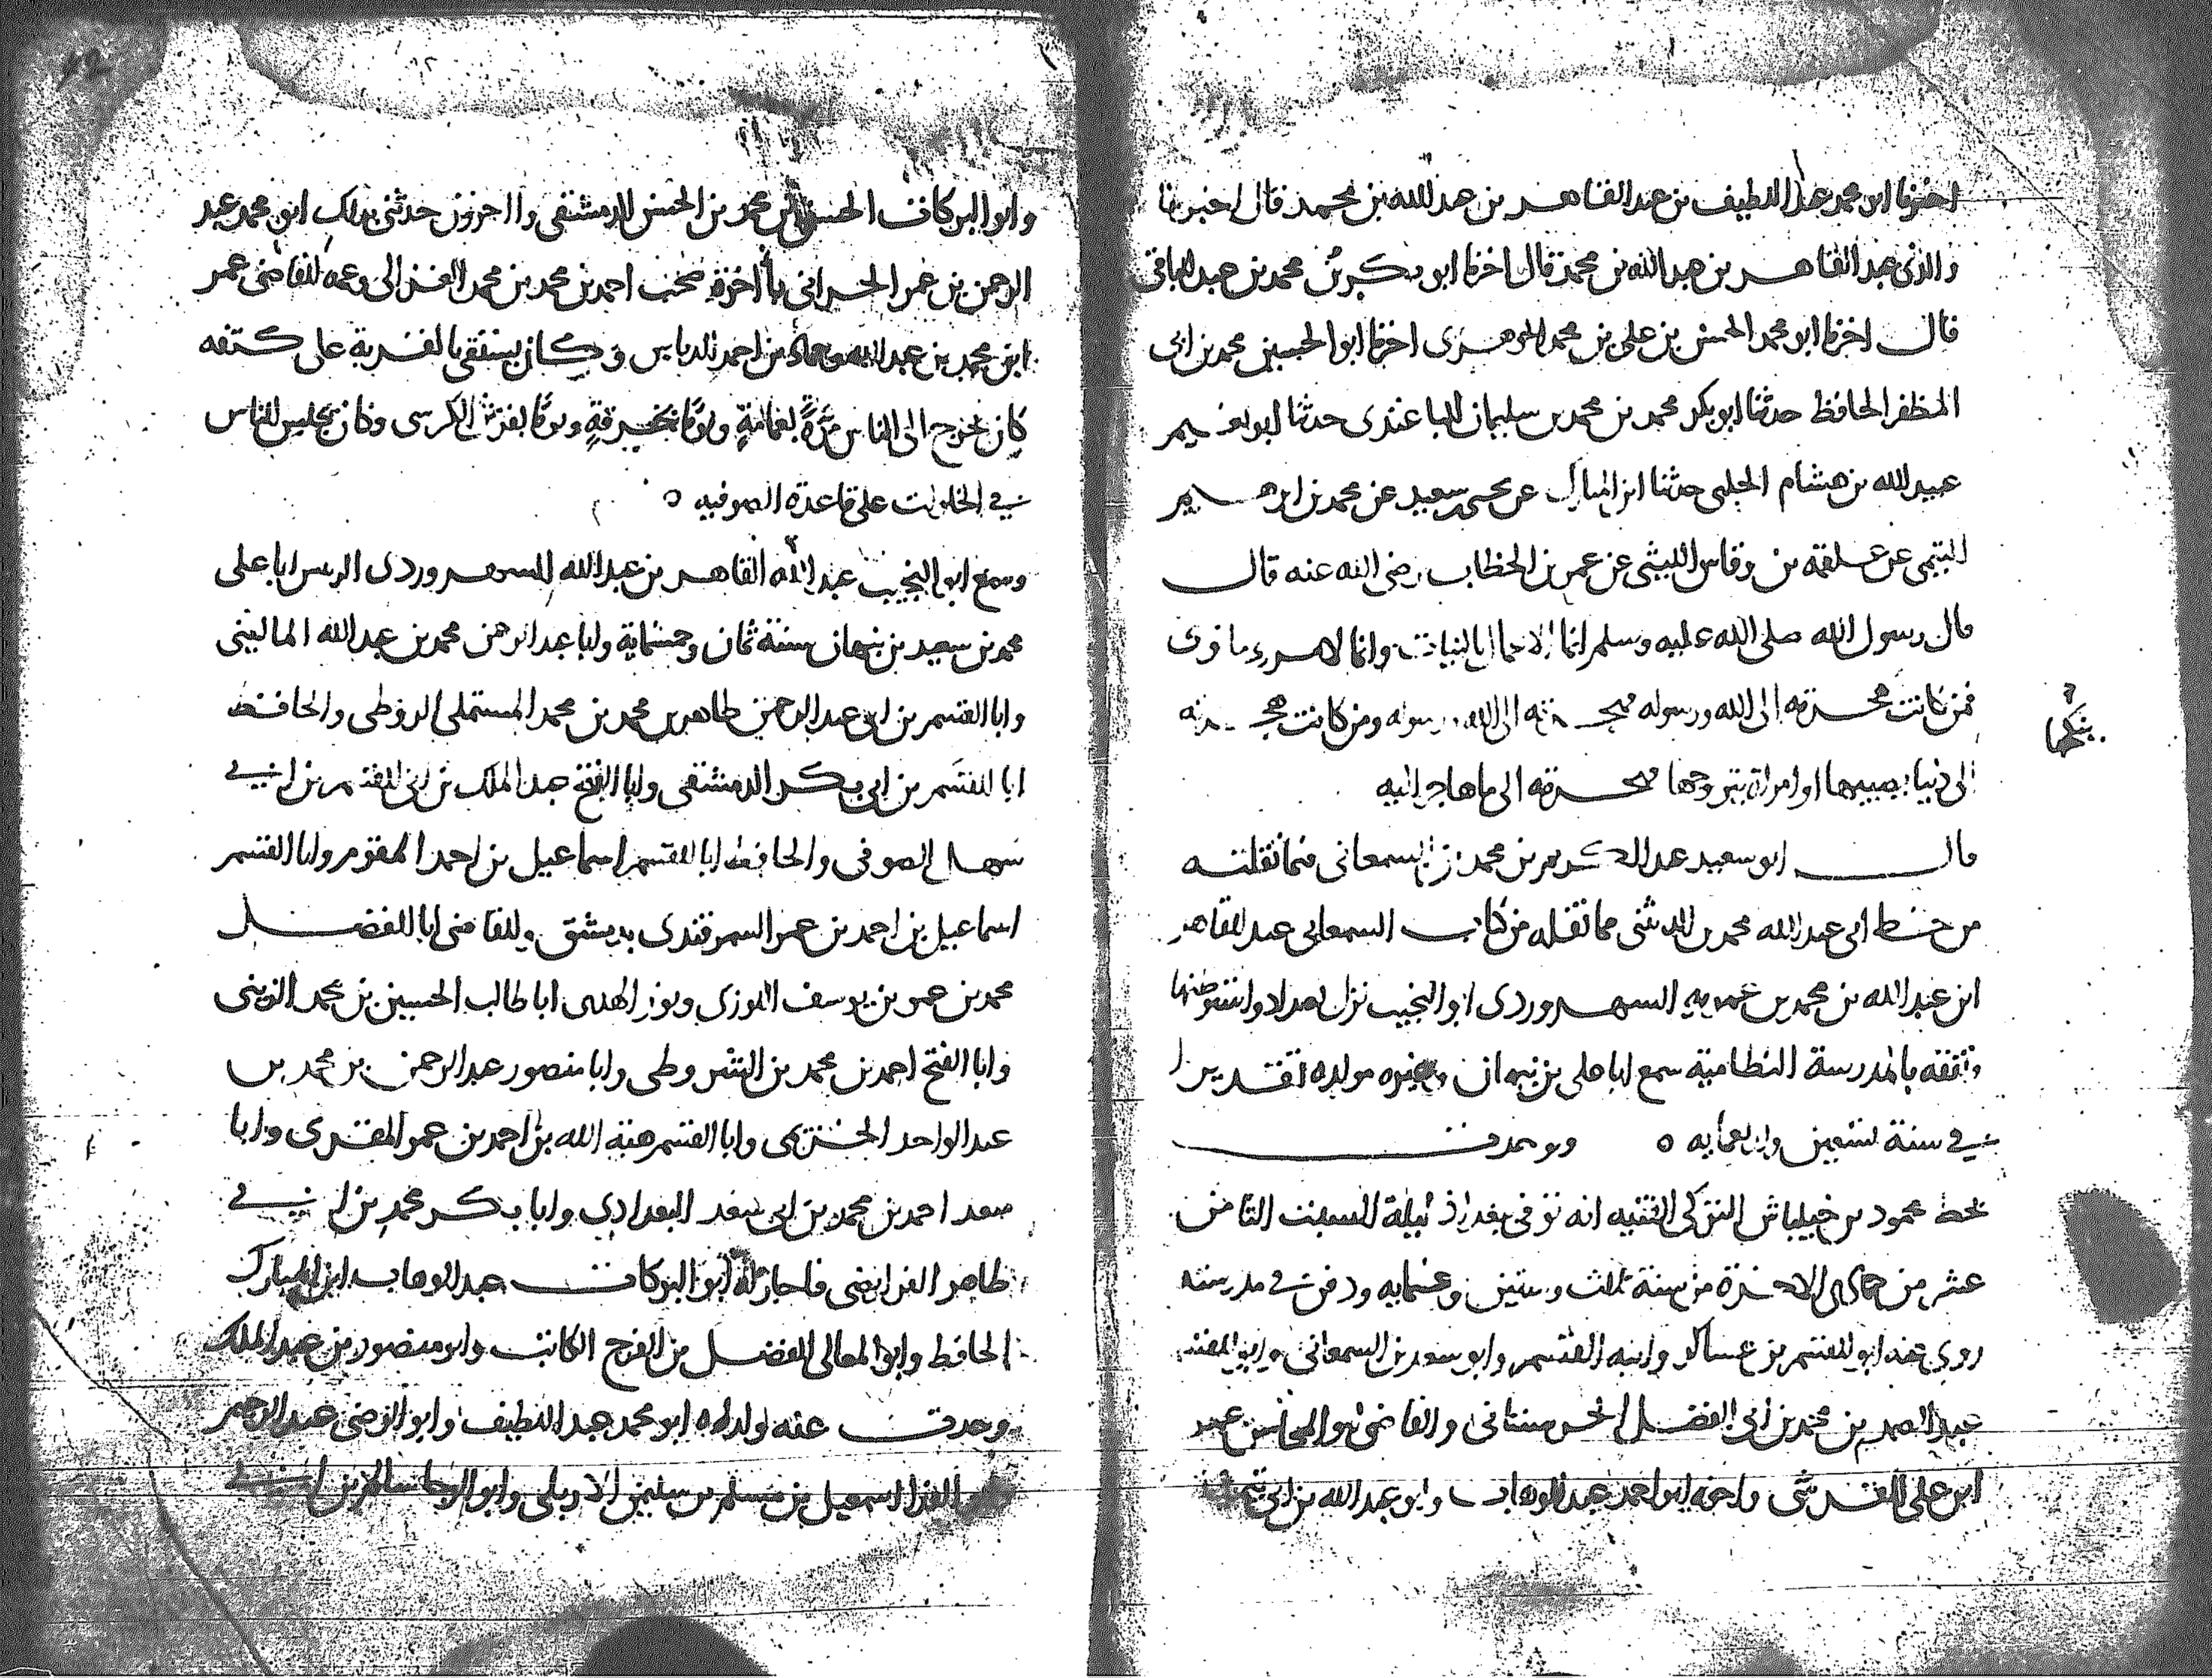 اخبرنا ابو محمد عبد اللطيف بن عبد القاهر بن عبد الله بن محمد قال اخبرنا
والدي عبد القاهر بن عبد الله بن محمد قال اخبرنا ابو بكر بن محمد بن عبد الباقي
قال اخبرنا ابو محمد الحسن بن علي بن محمد الجوهري اخبرنا ابو الحسين محمد بن ابي
المظفر الحافظ حدثنا ابو بكر محمد بن محمد بن سليمان الباغندى حدثنا ابو نعيم
عبيد الله بن هشام الحلبى حدثنا ابن المبارك عن يحيى بن سعيد عن محمد بن ابرهيم
التيمى عن علقمة بن وقاص الليثى عن عمر بن الخطاب رضى الله عنه قال
قال رسول الله صلى الله عليه وسلم انما الاعمال بالنيات وانما لامرء ما نوى
فمن كانت هجرته الى الله ورسوله فهجرته الى الله ورسوله ومن كانت هجرته
الى دنيا يصيبها او امراة يتزوجها فهجرته الى ما هاجر اليه
ينكحها
قال ابو سعيد عبد الكريم بن محمد بن السمعانى فيما نقلته
من خط ابى عبد الله محمد بن الدبيثى مما نقله من كتاب السمعانى عبد القاهر
ابن عبد الله بن محمد بن عمويه السهروردى ابو النجيب نزل بغداد واستوطنها
وتفقه بالمدرسة النظامية سمع ابا على بن نبهان وغيره مولده تقديرا
في سنة تسعين واربعمايه ٥ ووجدت
بخط محمود التركى الفقيه انه توفى ببغداد ليلة السبت الثامن
عشر من جمادى الاخرة من سنة ثلث وستين وخمسمايه ودفن في مدرسته
روى عنه ابو القسم بن عساكر وابنه القسم وابو سعد بن السمعانى
عبد الصمد بن محمد بن ابى الفضل الحرستانى والقاضى ابو المحاسن عمر
ابن على القرشى واخوه ابو احمد عبد الوهاب وابو عبد الله بن ابى
وابو البركات الحسن بن محمد بن الحسن الدمشقى واخرون حدثنى بذلك ابو محمد عبد
الرحمن بن عمر الحرانى باخرة صحب احمد بن محمد بن محمد الغزالى وعمه القاضى عمر
ابن محمد بن عبد الله وحماد بن احمد الدباس وكان يستقى بالقربة على كتفه
كان يخرج الى الناس مرة بعمامة ويوما بخرقة ويوما بفرش الكرسى وكان يجلس الناس
في الخلوات على قاعدة الصوفيه ٥
وسمع ابو النجيب عبد القاهر بن عبد الله السهروردى الريس ابا على
محمد بن سعيد بن نبهان سنة ثمان وخمسماية وابا عبد الرحمن محمد بن عبد الله الماليني
وابا القسم بن ابى عبد الرحمن طاهر بن محمد بن محمد المستملى والحافظ
ابا القسم بن ابى بكر الدمشقى وابا الفتح عبد الملك بن ابى القسم بن ابي
سهل الصوفى والحافظ ابا القسم اسماعيل بن احمد المقوم وابا القسم
اسماعيل بن احمد بن عمر السمرقندى بدمشق والقاضى ابا الفضل
محمد بن عمر بن يوسف الارموى ونور الهدى ابا طالب الحسين بن محمد الزينبى
وابا الفتح احمد بن محمد بن وابا منصور عبد الرحمن بن محمد بن
عبد الواحد وابا القسم هبة الله بن احمد بن عمر المقرى وابا
سعد احمد بن محمد بن ابى سعد البغدادى وابا بكر محمد بن ابي
طاهر الفرايضى واجاز له ابو البركات عبد الوهاب ابن المبارك
الحافظ وابو المعالى الفضل بن الفرج الكاتب وابو منصور بن عبد الملك
وحدث عنه ولداه ابو محمد عبد اللطيف وابو الرضى عبد الرحيم
اسمعيل بن مسلم بن سليمن الاربلى وابو الرجا سالم بن ابي